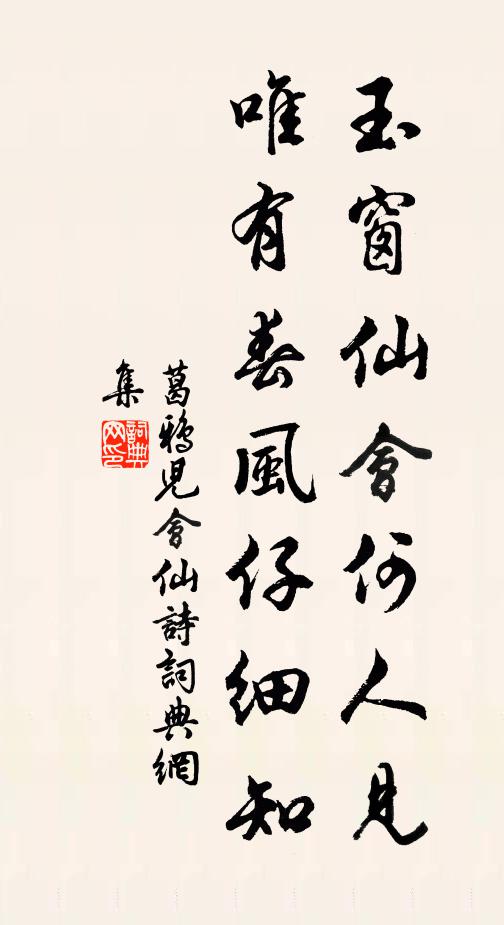 玉窗仙會何人見
唯有春風仔細知
葛鴉兒會仙詩詞典網
集
詞典网印